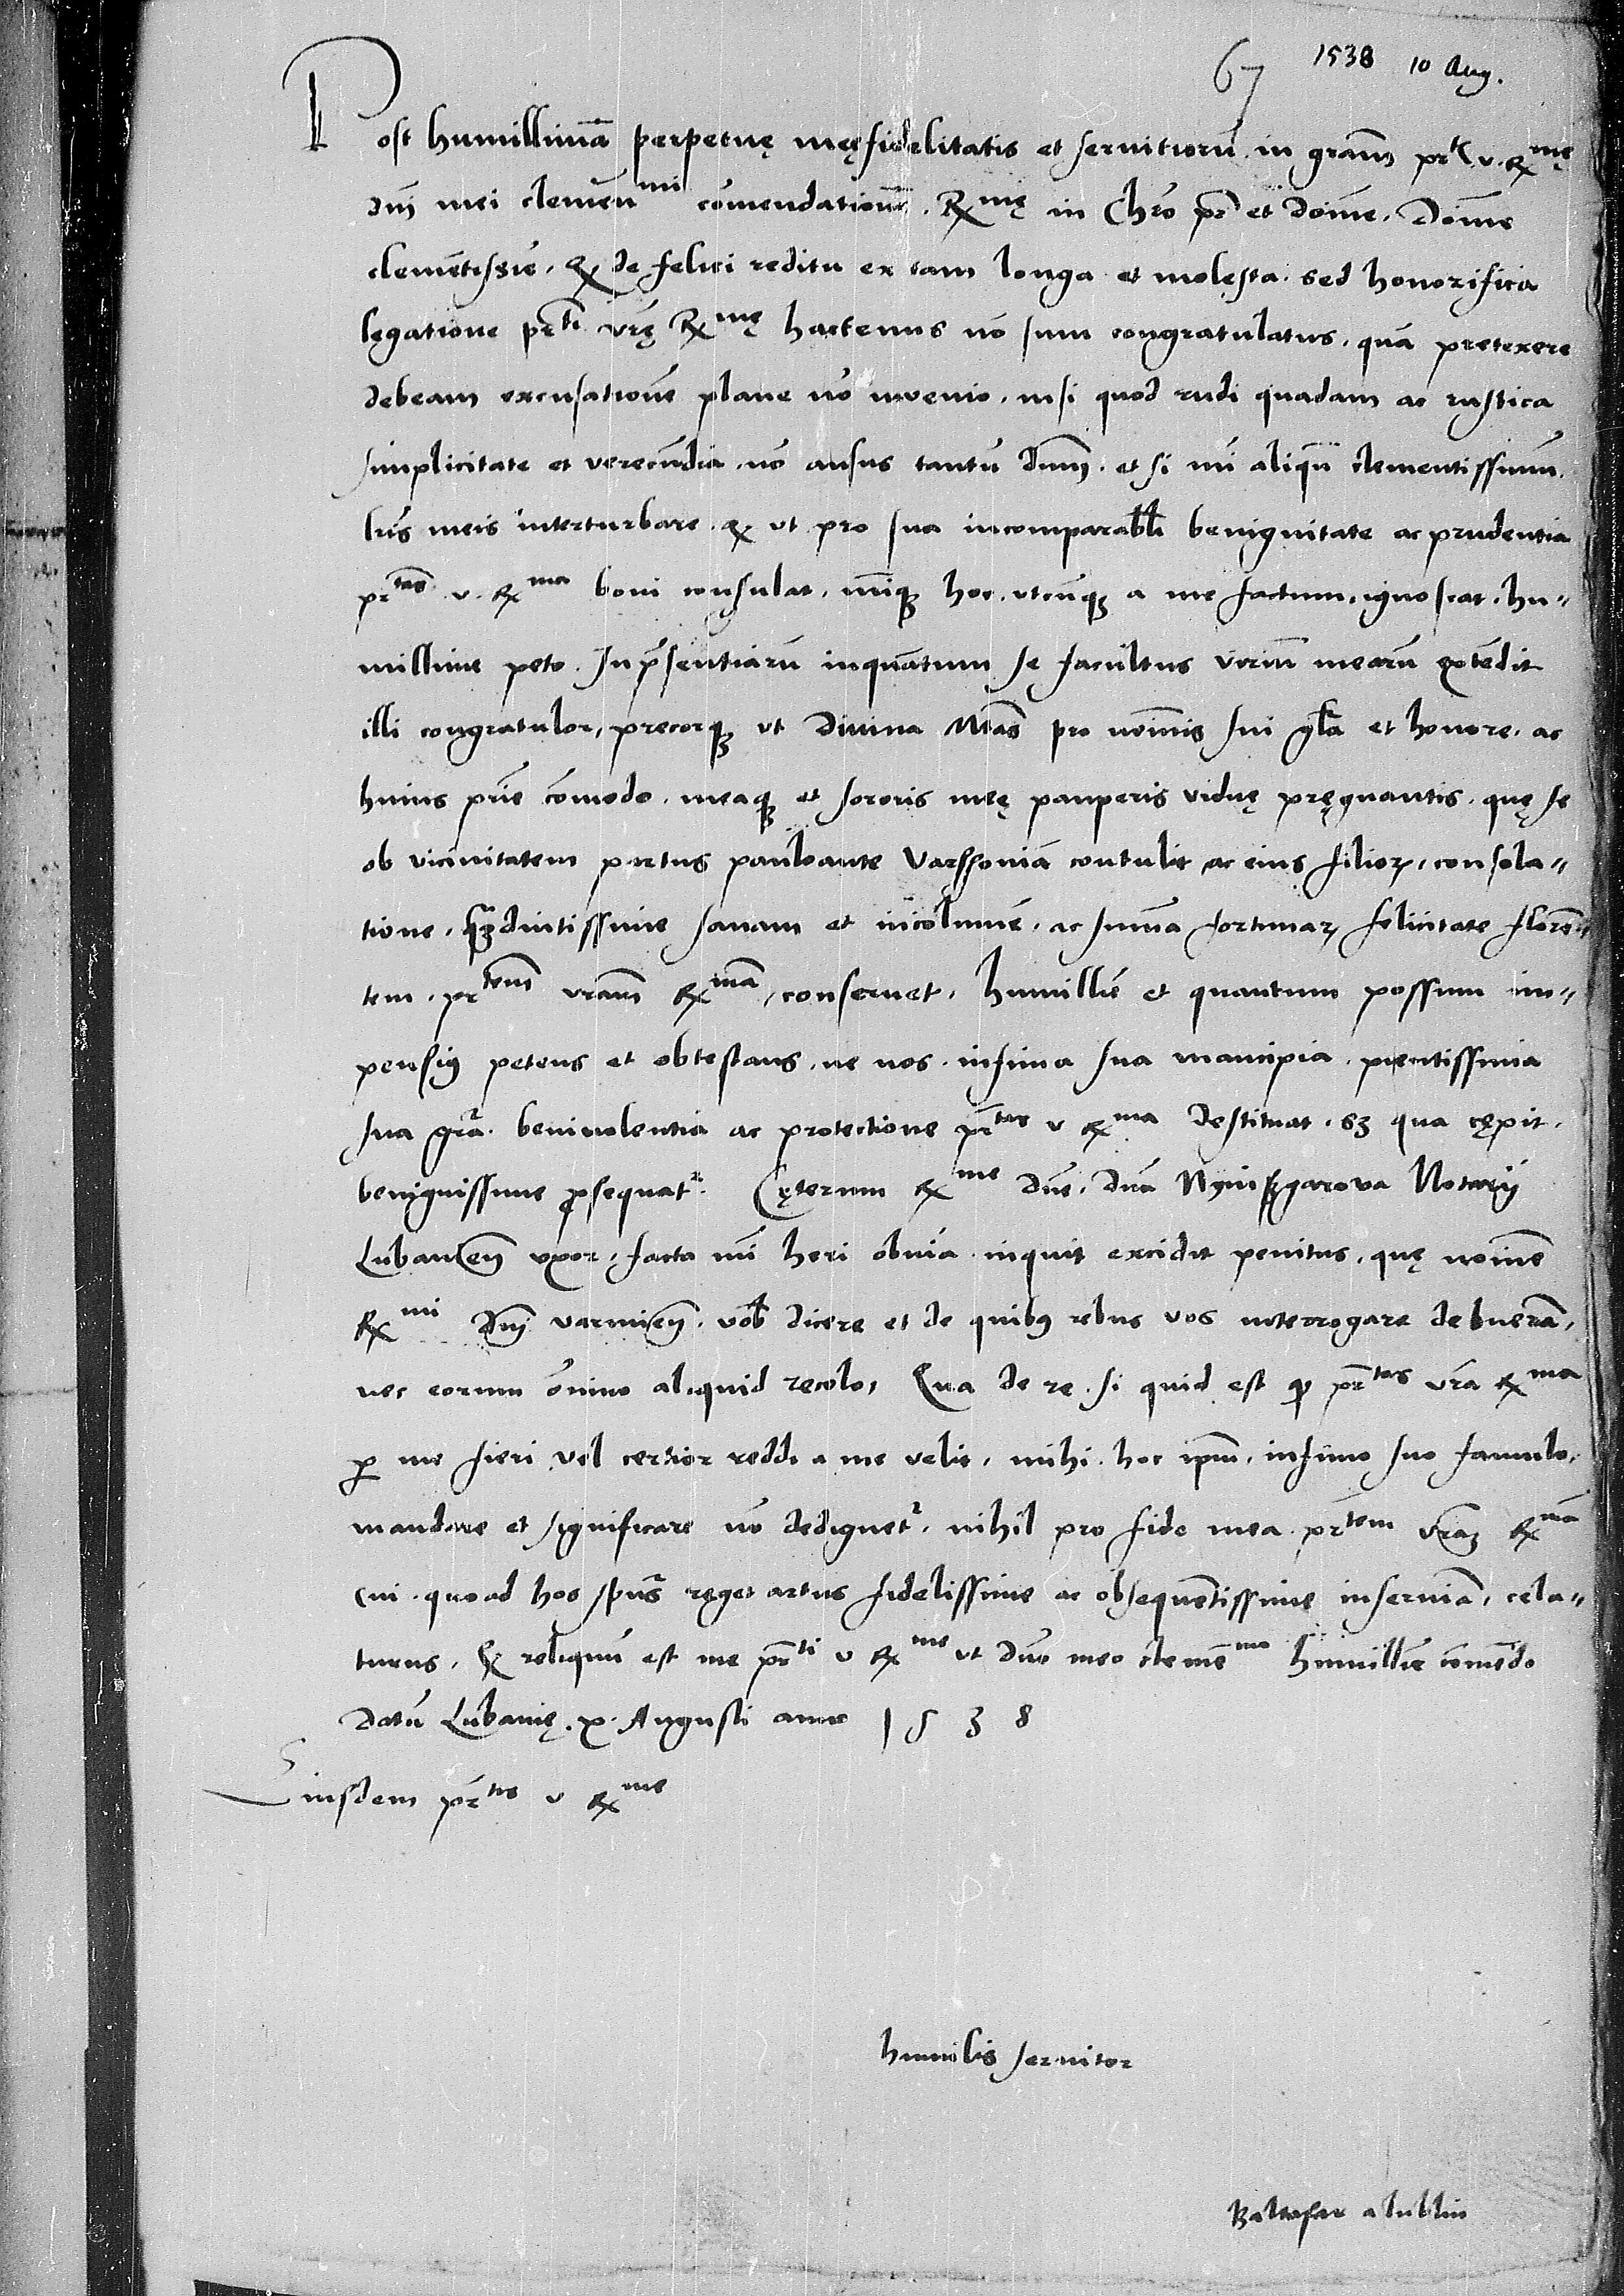 67 1538 10 Aug.
Post humillimā perpetuę męę fidelitatis et seruitiorū in gratiam prtis v. Rx mę
dni mei clemen mi comendationē. Rx mę in Chro pr et dōme. Dōme
clementissīe. Qx de felici reditu ex tam longa et molesta. sed honorifica
lęgatione prti vrę Rx mę hactenus nō sum congratulatus. quā pretexere
debeam excusationē plane nō inuenio. nisi quod rudi quadam ac rustica
simplicitate et verecūdia. nō ausus tantū dnm. et si mi aliqn̄ clementissimū.
lris meis interturbare. qx vt pro sua incomparabili benignitate ac prudentia
prtas v. Rx ma boni consulat. miq3 hoc vtcūq3 a me factum, ignoscat. hu-
millime peto. In p̄sentiarū inquantum se facultas viriū mearū extēdit
illi congratulor, precorq3 vt Diuina Mtas pro nōinis sui glia et honore. ac
huius prie cōmodo. meaq3 et sororis meę pauperis viduę pręgnantis. quę se
ob vicinitatem partus pauloante Varssoniā contulit ac eius filiorx, consola-
tione. q3diutissime sanam et incolumē. ac summa fortunarx felicitate florēn-
tem. prtem vram Rx mā, conseruet. humillīe et quantum possum im-
pensius petens et obtestans. ne nos. infima sua mancipia. pientissima
sua gra. beniuolentia ac protectione prtas v Rx ma destituat. s3 qua cępit.
benignissime psequatr. Cęterum Rx me dne. dna Nyni garowa Notarij
Lubanień vxor, facta mi heri obuia. inquit excidit penitus, quę nomine
Rx mi dni varmień. vob dicere et de quibus rebus vos interrogare debuerā,
nec eorum ōnino aliquid recolo, Qua de re. si quid est q prtas vra Rx ma
p me fieri vel certior reddi a me velit. mihi. hoc ipsm. infimo suo famulo.
mandare et significare nō dedignetr. nihil pro fide mea prtem vram Rx mā
cui. quoad hos spus reget artus fidelissime ac obsequētissime inseruiā, cela-
turus. Qx reliquū est me prti v Rx me vt dno meo clemē mo humillīe comēdo
Datū Lubanię. x. Augusti anno 1538
Eiusdem prtis v Rx me
humilis seruitor
Baltasar a lublin